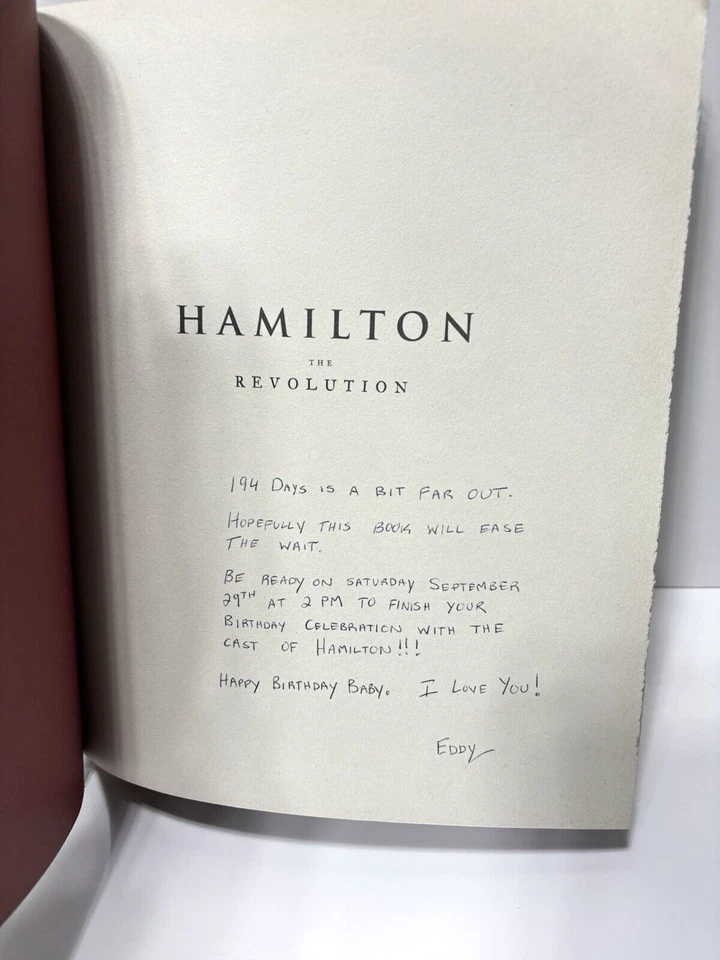 HAMILTON
THE
REVOLUTION
194 DAYS IS A BIT FAR OUT.
HOPEFULLY THIS BOOK WILL EASE
THE WAIT.
BE READY ON SATURDAY SEPTEMBER
29TH AT 2 PM TO FINISH YOUR
BIRTHDAY CELEBRATION WITH THE
CAST OF HAMILTON!!!
HAPPY BIRTHDAY BABY. I LOVE YOU!
EDDY